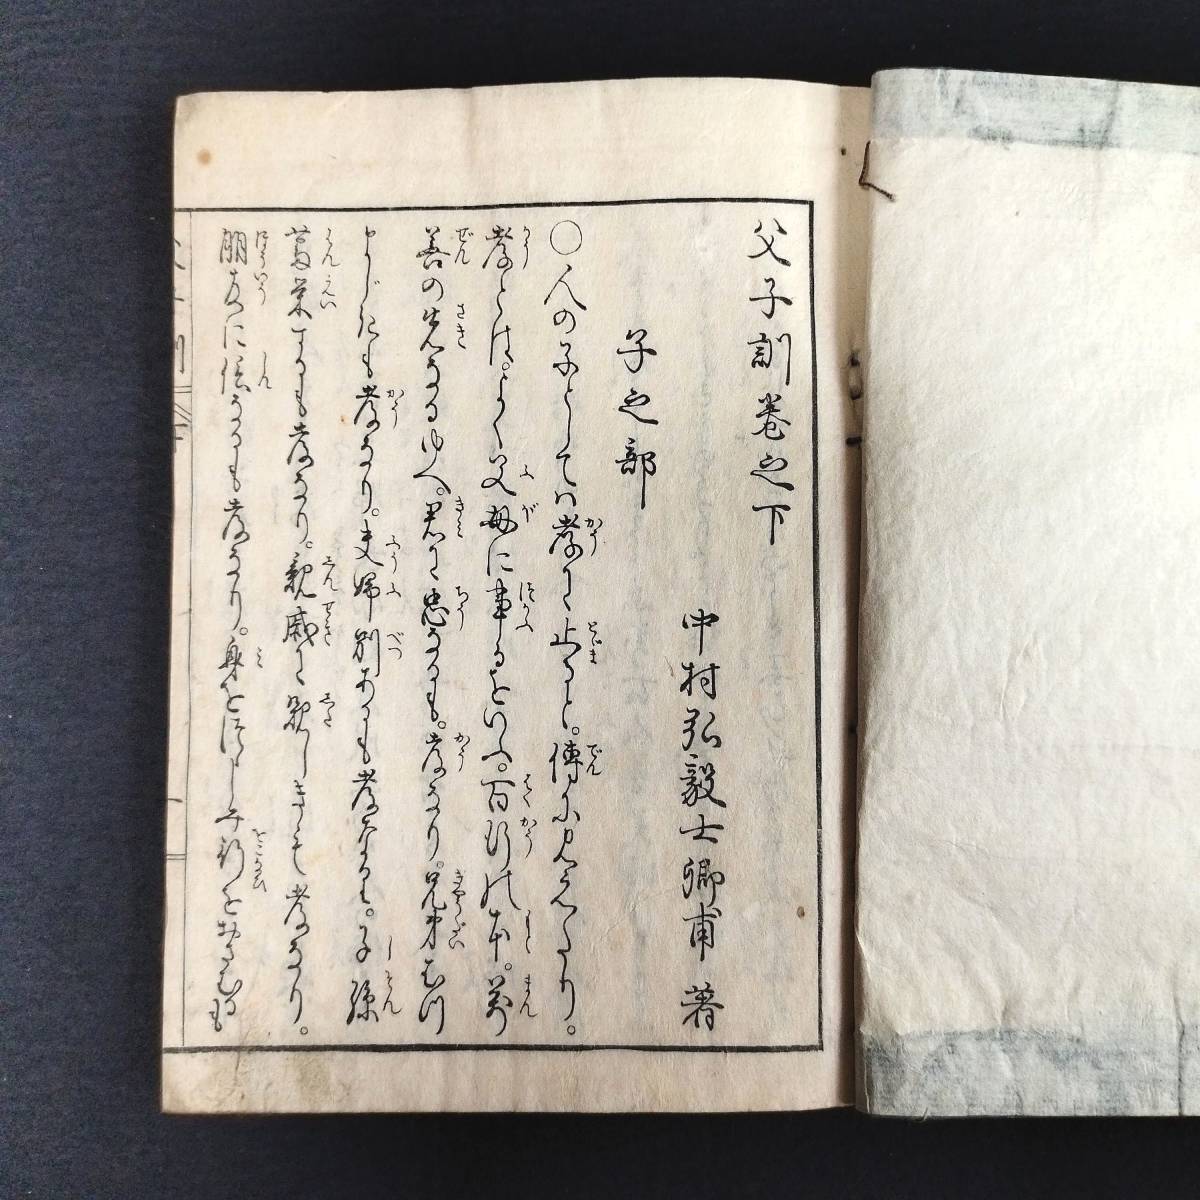 父子訓卷之下
中村弘毅士卿甫著
子之部
○人の子としては孝に止ると。傳に見えたり。
孝とは。よく父母に事るをいふ。百行の本。萬
善の先なるゆへ。君に忠なるも。孝なり。兄弟むつ
ましきも孝なり。夫婦別あるも孝なり。子孫
蕃栄するも孝なり。親戚に親しきも孝なり。
朋友に信なるも孝なり。身をつゝしみ行をおさむるも